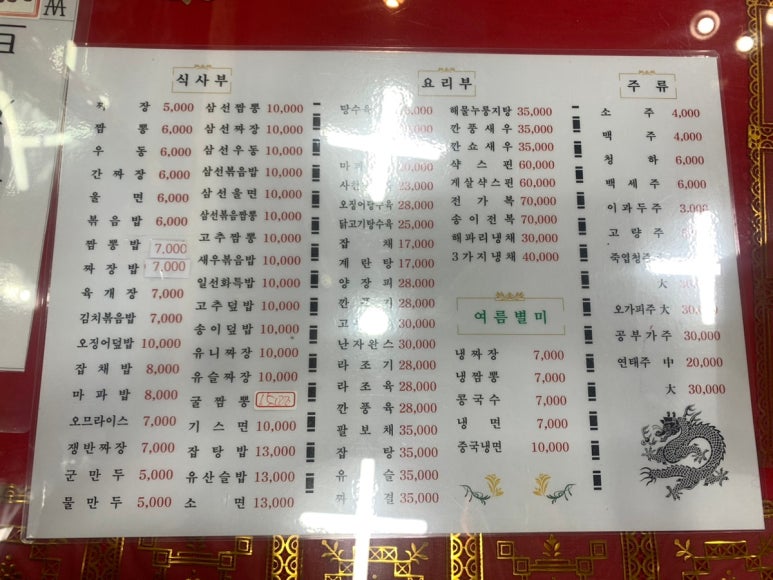 식사부
짜 장 5,000
짬 뽕 6,000
우 동 6,000
간 짜 장 6,000
울 면 6,000
볶 음 밥 6,000
짬 뽕 밥 7,000
짜 장 밥 7,000
육 개 장 7,000
김치볶음밥 7,000
오징어덮밥 10,000
잡 채 밥 8,000
마 파 밥 8,000
오므라이스 7,000
쟁반짜장 7,000
군 만 두 5,000
물 만 두 5,000
삼선짬뽕 10,000
삼선짜장 10,000
삼선우동 10,000
삼선볶음밥 10,000
삼선울면 10,000
삼선볶음짬뽕 10,000
고추짬뽕 10,000
새우볶음밥 10,000
일선화특밥 10,000
고추덮밥 10,000
송이덮밥 10,000
유니짜장 10,000
유슬짜장 10,000
굴 짬 뽕
기 스 면 10,000
잡 탕 밥 13,000
유산슬밥 13,000
소 면 13,000
요리부
탕수육
20,000
23,000
오징어탕수육 28,000
닭고기탕수육 25,000
잡 채 17,000
계 란 탕 17,000
양 장 피 28,000
28,000
30,000
난자완스 30,000
라 조 기 28,000
라 조 육 28,000
깐 풍 육 28,000
팔 보 채 35,000
잡 탕 35,000
유 슬 35,000
짜 결 35,000
해물누룽지탕 35,000
깐풍새우 35,000
깐쇼새우 35,000
샥 스 핀 60,000
게살샥스핀 60,000
전 가 복 70,000
송이전복 70,000
해파리냉채 30,000
3가지냉채 40,000
여름별미
냉 짜 장 7,000
냉 짬 뽕 7,000
콩 국 수 7,000
냉 면 7,000
중국냉면 10,000
주 류
소 주 4,000
맥 주 4,000
청 하 6,000
백 세 주 6,000
이과두주 3,000
고 량 주
죽엽청주
大 30,000
오가피주 大 30,000
공부가주 30,000
연태주 中 20,000
大 30,000